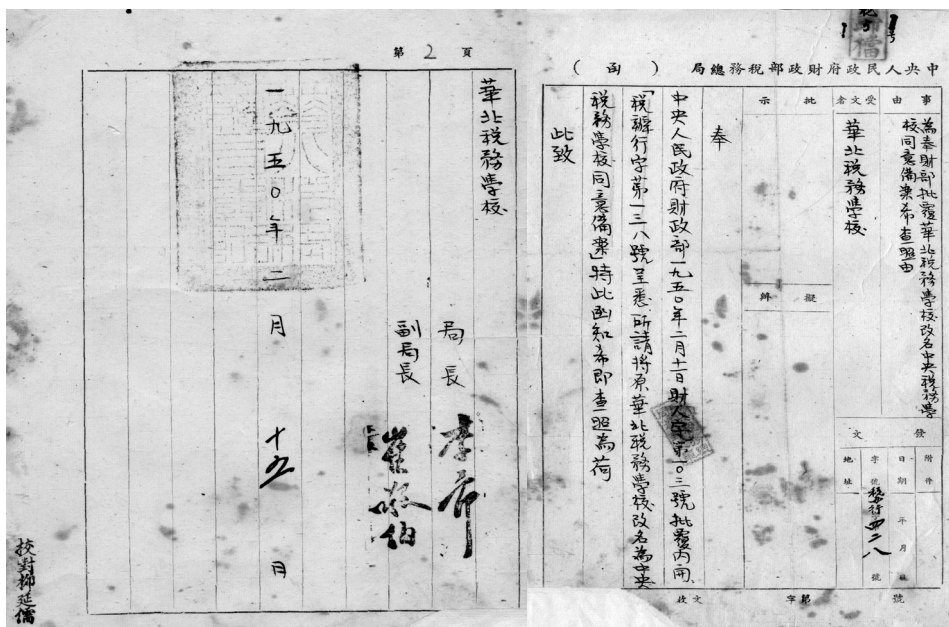 中央人民政府財政部稅務總局 （函）
事由
為奉財部批覆華北稅務學校改名中央稅務學
校同意備案希查照由
受文者
華北稅務學校
批示
擬辦
發文
附件
日期 年 月 日
字號 稅辦行四二八號
地址
奉
中央人民政府財政部一九五〇年二月十一日財人字第一〇三號批覆內開
「稅辦行字第一三八號呈悉所請將原華北稅務學校改名為中央
稅務學校同意備案」特此函知希即查照為荷
此致
收文 字第 號
第2頁
華北稅務學校
局長 李予昂
副局長 崔敬伯
一九五〇年二月十五日
校對柳延儒